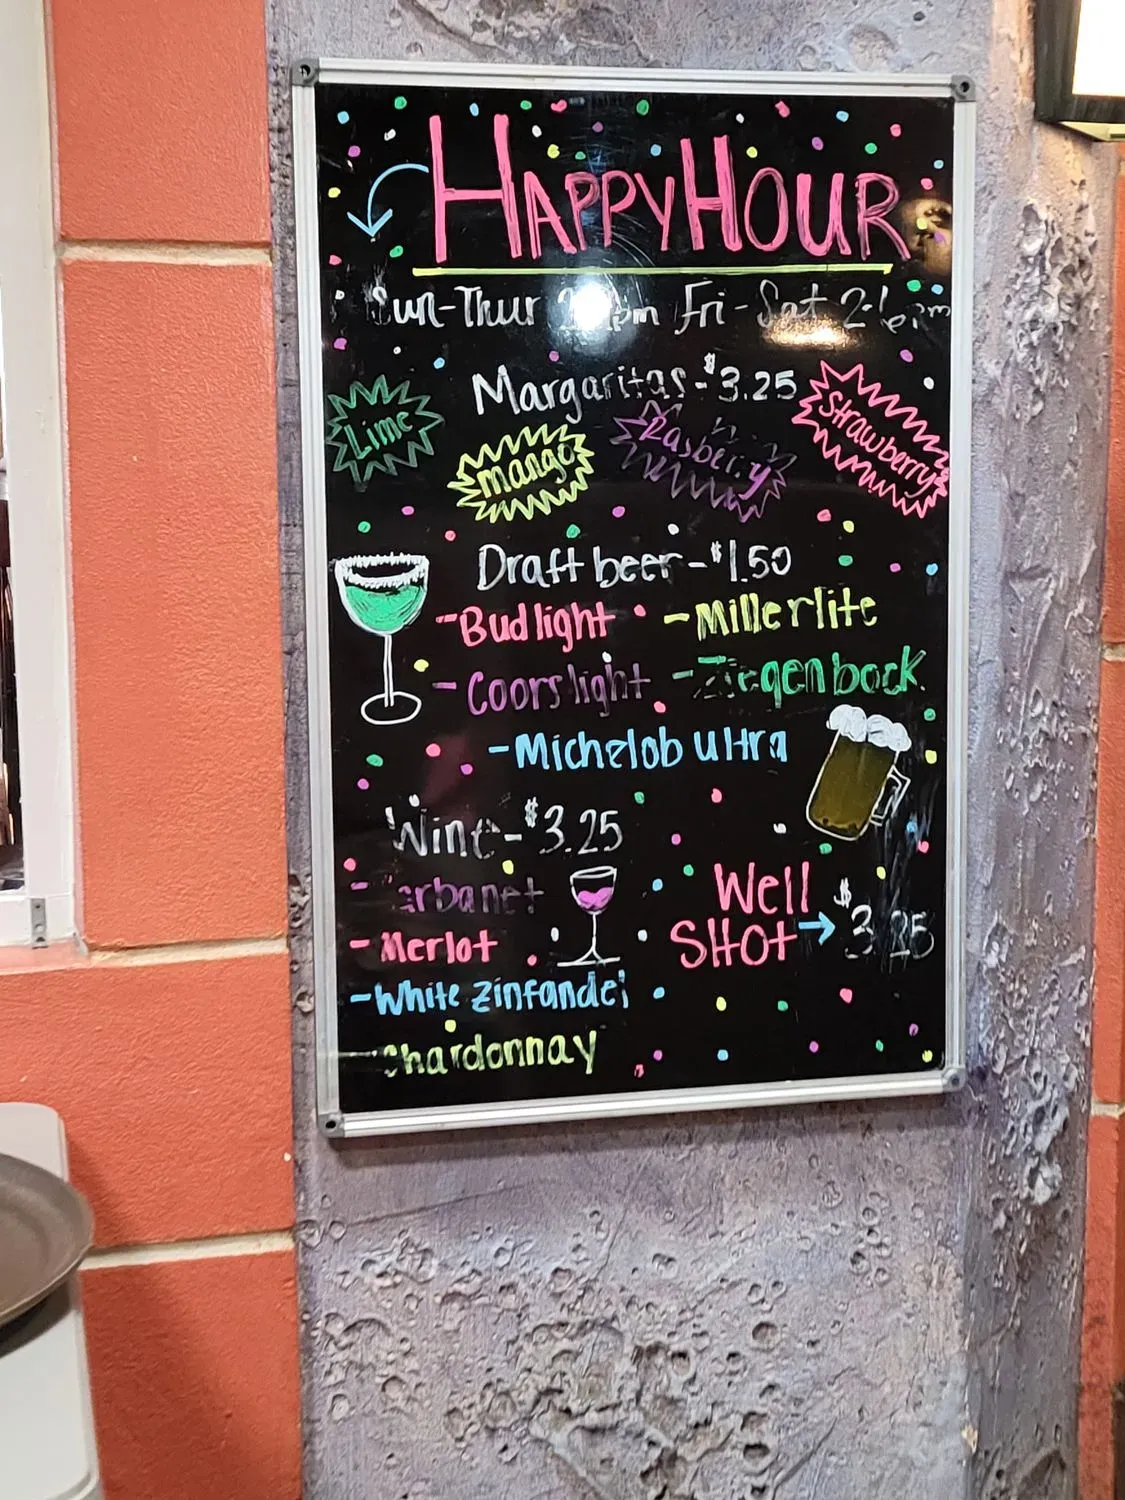 HAPPY HOUR
Sun-Thur Fri-Sat
Margaritas-$3.25
Lime
mango
Rasberry
Strawberry
Draft beer-$1.50
-Bud light -Miller lite
-Coors light -Ziegenbock
-Michelob ultra
Wine-$3.25
-Merlot
-White Zinfandel
Chardonnay
Well
SHOt→ $3.25